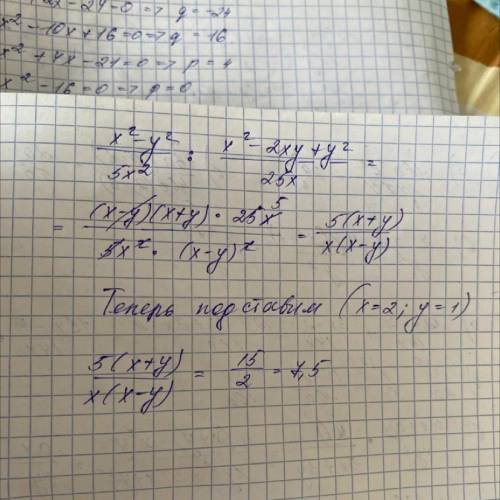 x² - 10x + 16 = 0 => q = 16
x² + 4x - 21 = 0 => p = 4
x² - 16 = 0 => p = 0
(x² - y²)/(5x²) : (x² - 2xy + y²)/(25x) =
= ((x-y)(x+y) · 25x)/(5x² · (x-y)²) = 5(x+y)/(x(x-y))
Теперь подставим (x=2; y=1)
5(x+y)/(x(x-y)) = 15/2 = 7,5